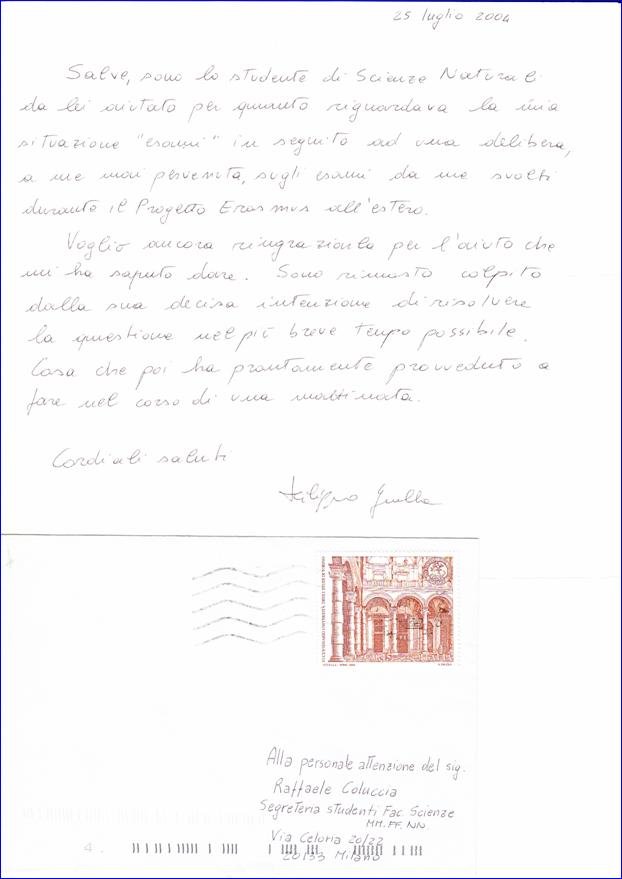 25 luglio 2004
Salve, sono lo studente di Scienze Naturali
da lei aiutato per quanto riguardava la mia
situazione "esami" in seguito ad una delibera,
a me mai pervenuta, sugli esami da me svolti
durante il Progetto Erasmus all'estero.
Voglio ancora ringraziarla per l'aiuto che
mi ha saputo dare. Sono rimasto colpito
dalla sua decisa intenzione di risolvere
la questione nel più breve tempo possibile.
Cosa che poi ha prontamente provveduto a
fare nel corso di una mattinata.
Cordiali saluti
Filippo
Alla personale attenzione del sig.
Raffaele Coluccia
Segreteria studenti Fac. Scienze
MM.FF.NN.
Via Celoria 20/22
20133 Milano
4.